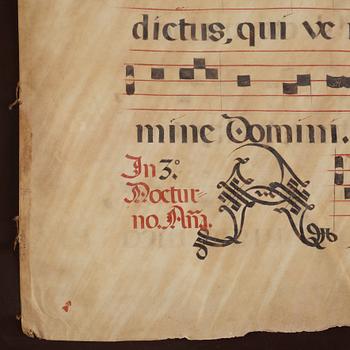 dictus, qui ve
mine Domini.
In 3.º
Noctur-
no. Añã.
A